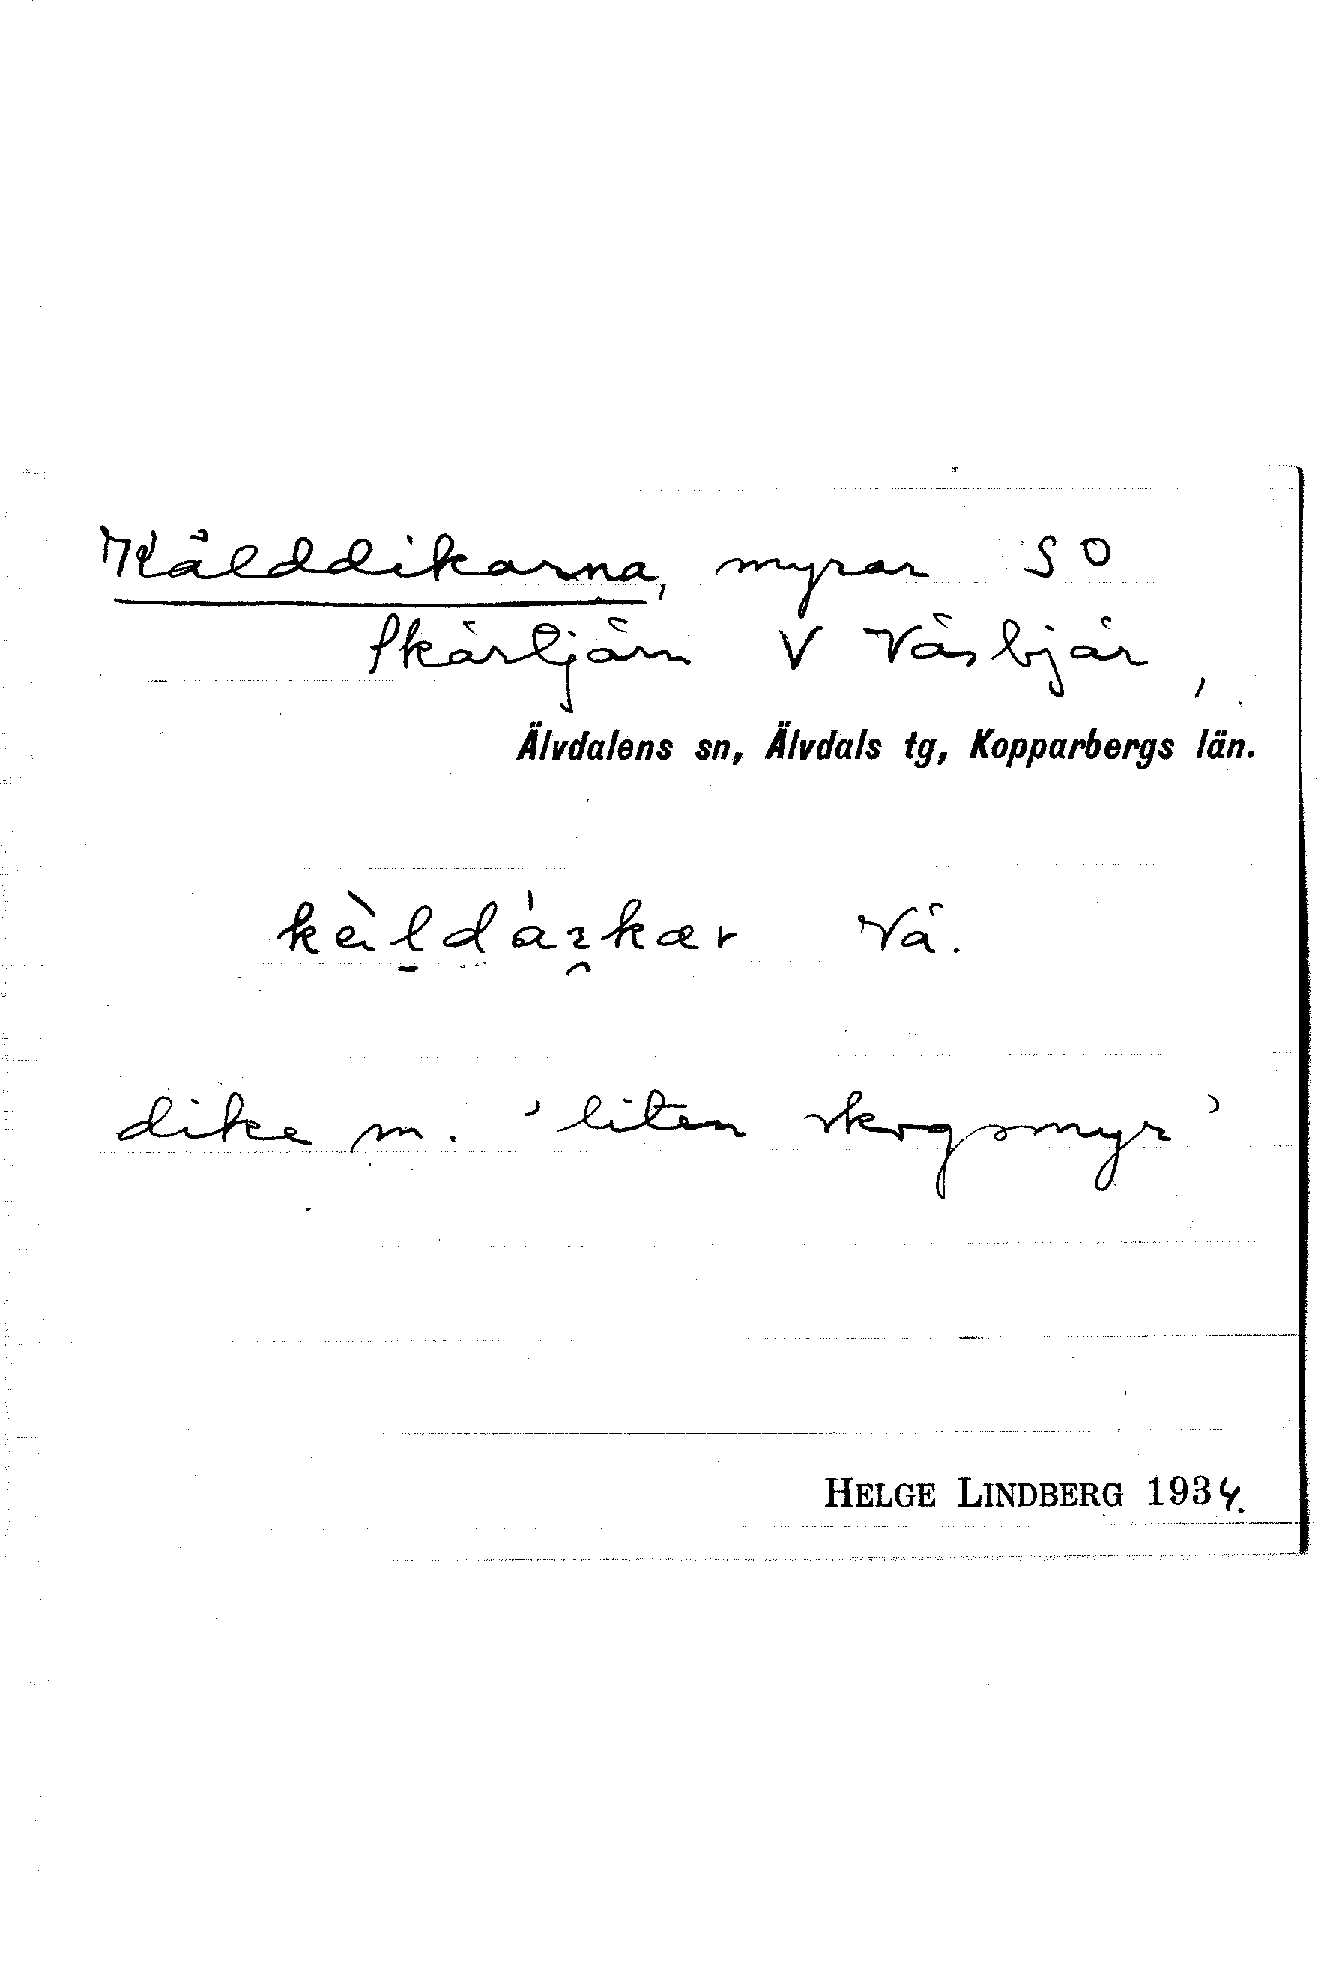 Källddikarna, myrar SO
Skärtjärn V Väsbjär,
Älvdalens sn, Älvdals tg, Kopparbergs län.
Vä.
dike m. 'liten skogsmyr'
HELGE LINDBERG 1934.